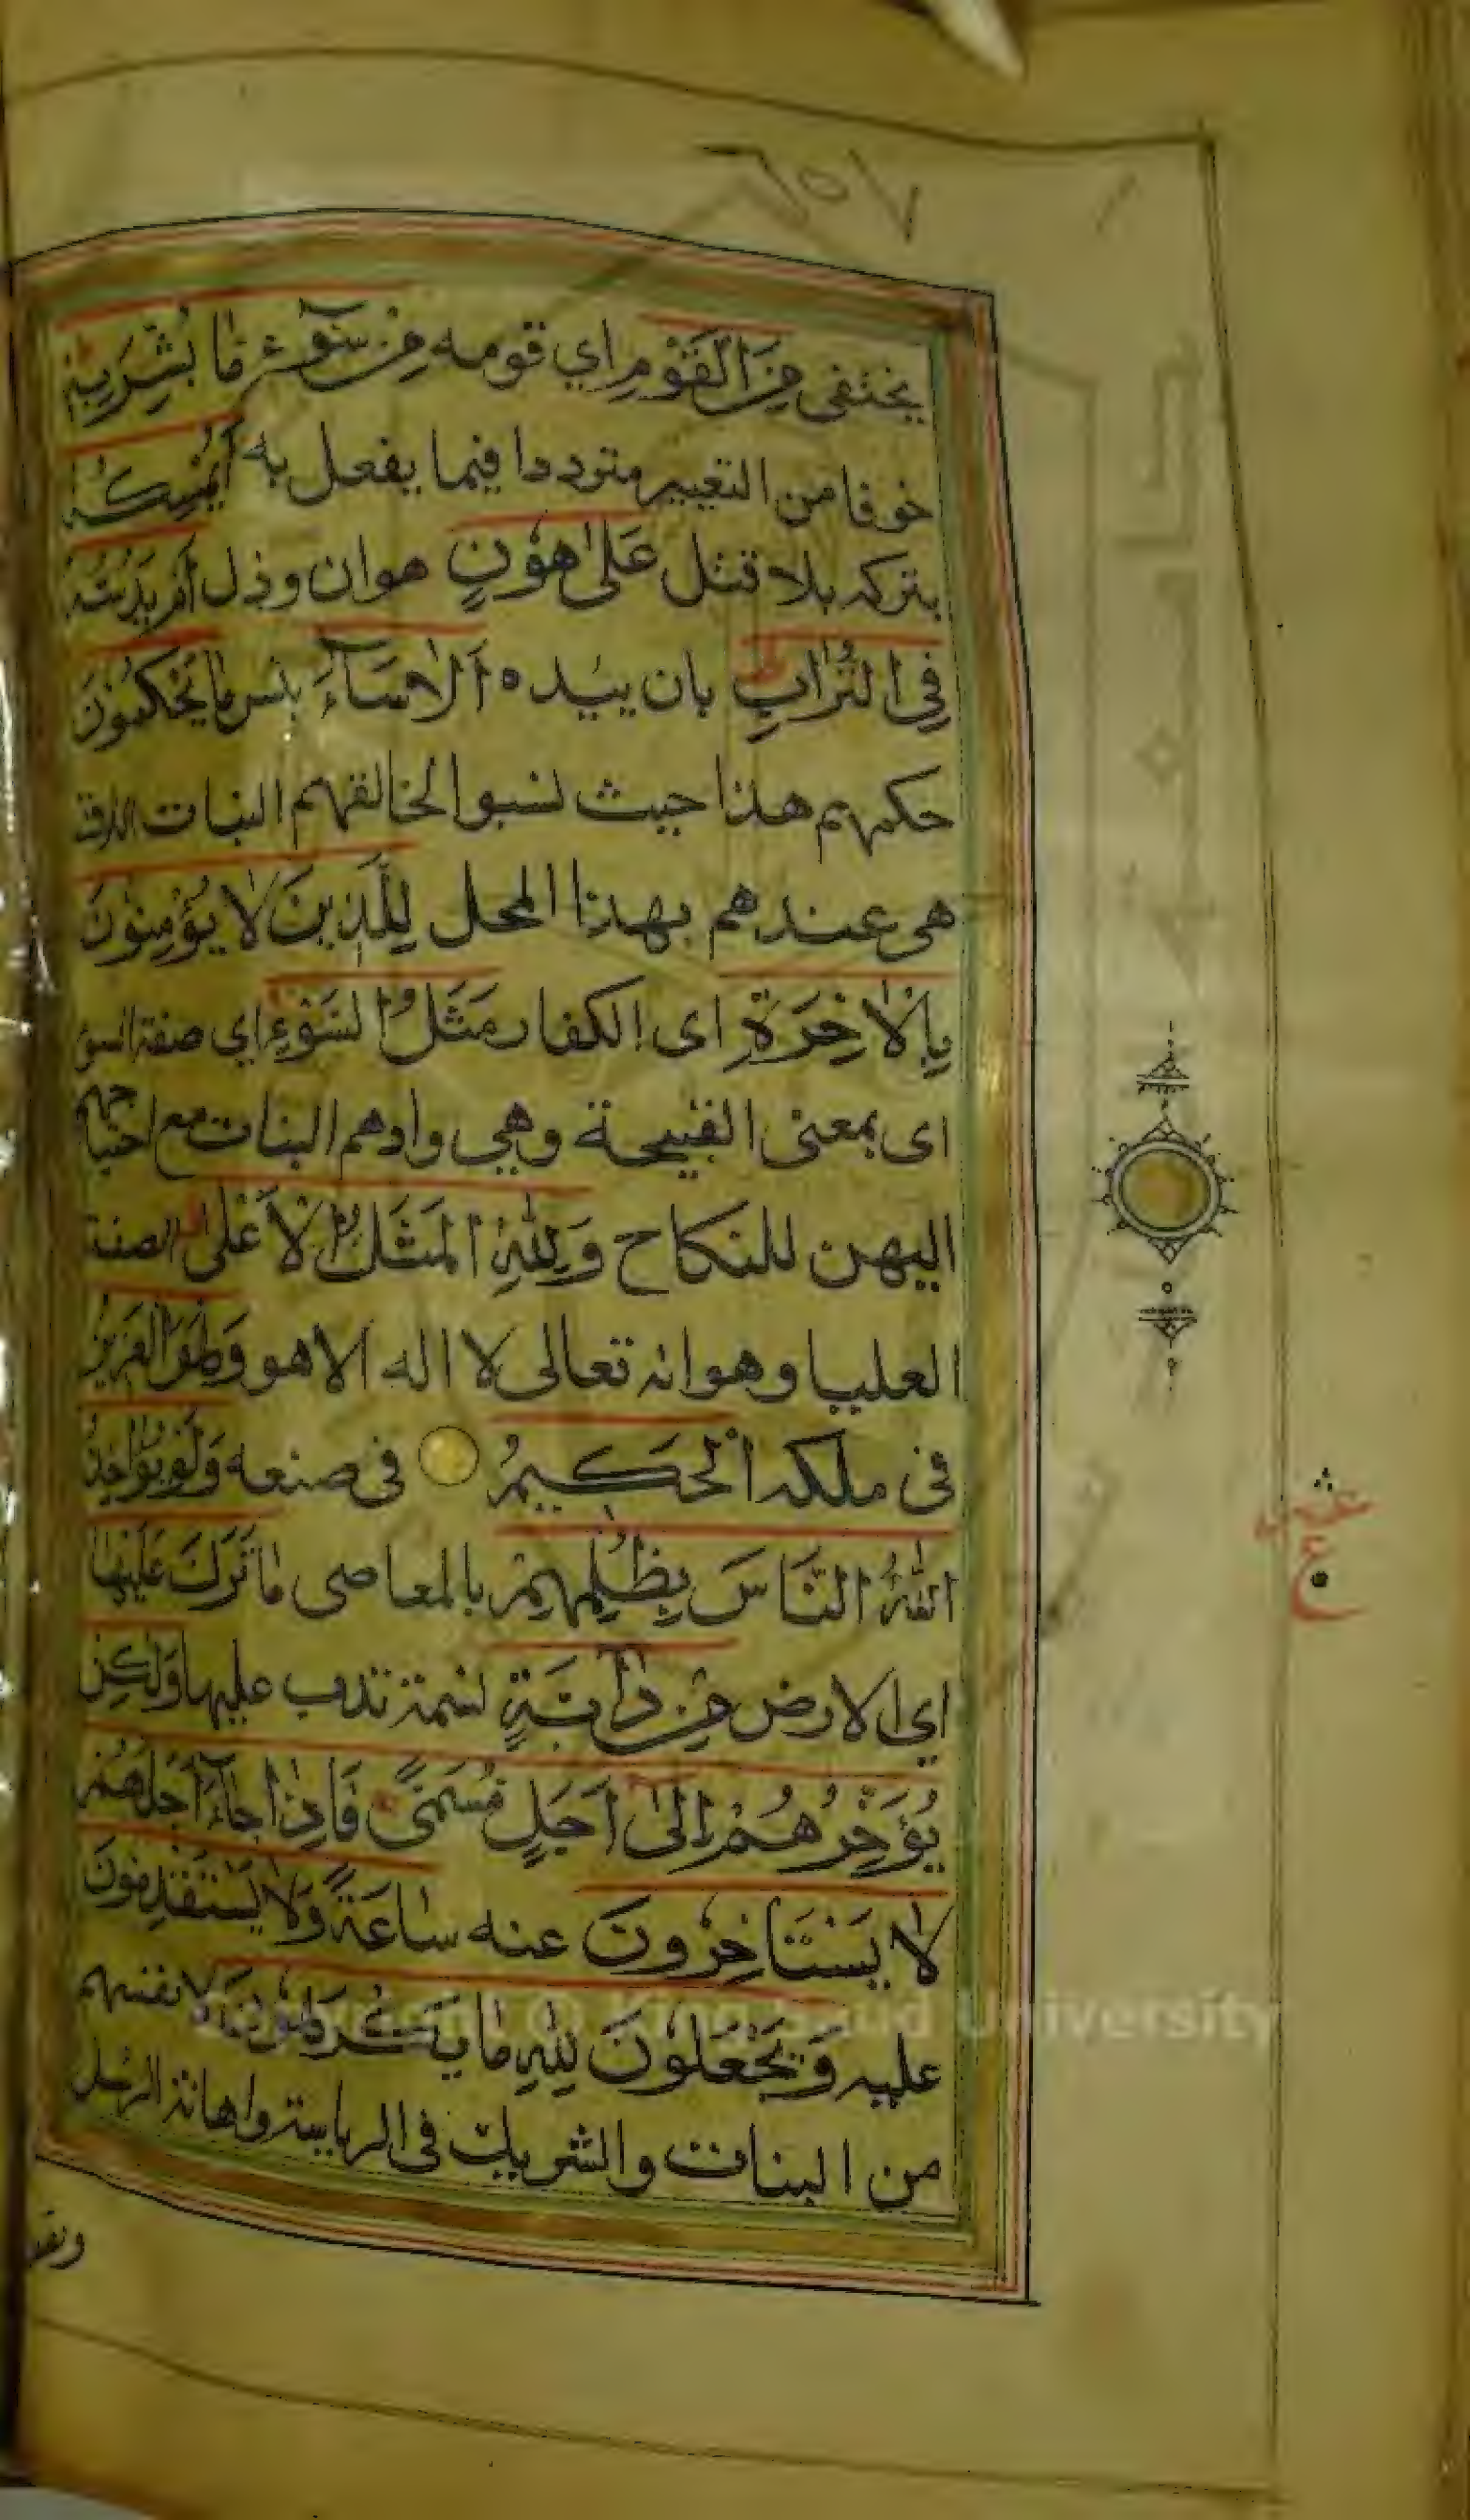 يختفى مِنَ الْقَوْمِ اي قومه مِنْ سُوٓءِ مَا بُشِّرَ بِهٖ
خوفا من التعيير مترددا فيما يفعل به أَيُمْسِكُهُ
يتركه بلا قتل عَلٰى هُوْنٍ هوان وذل أَمْ يَدُسُّهُ
فِى التُّرَابِ بان يئده اَلَا سَآءَ بئس مَا يَحْكُمُوْنَ
حكمهم هذا حيث نسبوا لخالقهم البنات اللاتى
هى عندهم بهذا المحل لِلَّذِيْنَ لَا يُؤْمِنُوْنَ
بِالْاٰخِرَةِ اى الكفار مَثَلُ السَّوْءِ اي صفة السوء
اى بمعنى القبيحة وهي وادهم البنات مع احتياجهم
اليهن للنكاح وَلِلّٰهِ الْمَثَلُ الْاَعْلٰى الصفة
العليا وهو انه تعالى لا اله الا هو وَهُوَ الْعَزِيْزُ
فى ملكه الْحَكِيْمُ فى صنعه وَلَوْ يُؤَاخِذُ
اللّٰهُ النَّاسَ بِظُلْمِهِمْ بالمعاصى مَا تَرَكَ عَلَيْهَا
اي الارض مِنْ دَآبَّةٍ نسمة تدب عليها وَلٰكِنْ
يُؤَخِّرُهُمْ اِلٰى اَجَلٍ مُسَمًّى فَاِذَا جَآءَ اَجَلُهُمْ
لَا يَسْتَاْخِرُوْنَ عنه سَاعَةً وَلَا يَسْتَقْدِمُوْنَ
عليه وَيَجْعَلُوْنَ لِلّٰهِ مَا يَكْرَهُوْنَ لانفسهم
من البنات والشريك فى الرياسة واهانة الرسل
King Saud University